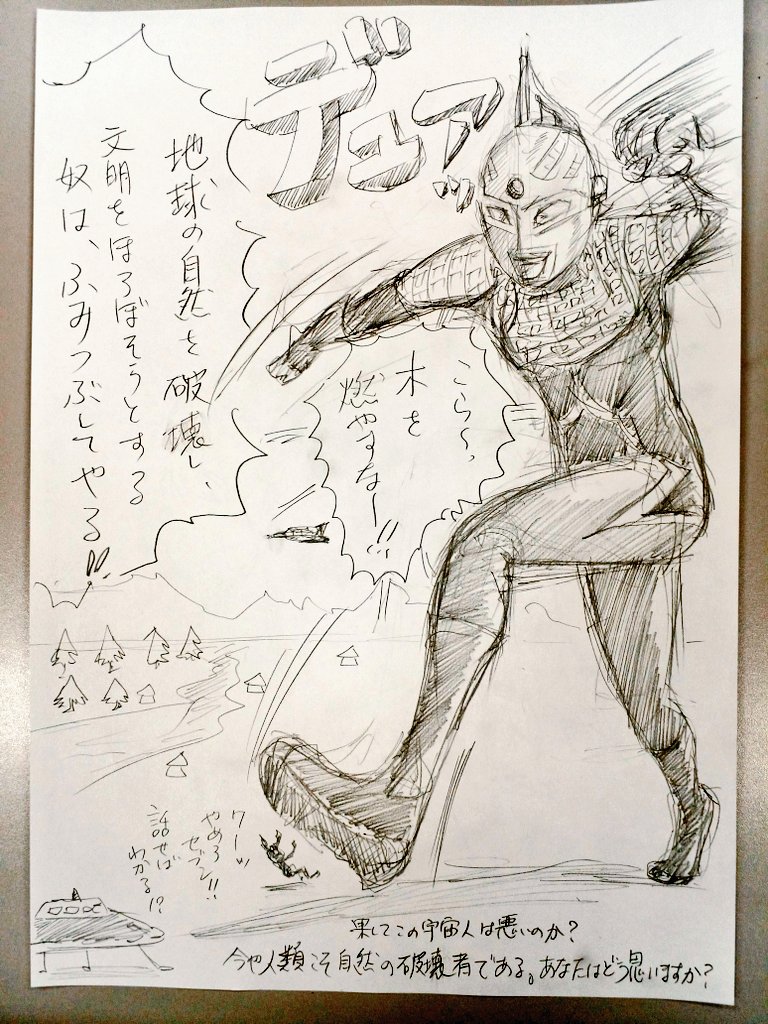 デュアッ
地球の自然を破壊し、
文明をほろぼそうとする
奴は、ふみつぶしてやる!!
こら〜、
木を
燃やすなー!!
ワーッ
やめろ
セブン!!
話せば
わかる!?
果してこの宇宙人は悪いのか?
今や人類こそ自然の破壊者である。あなたはどう思いますか?